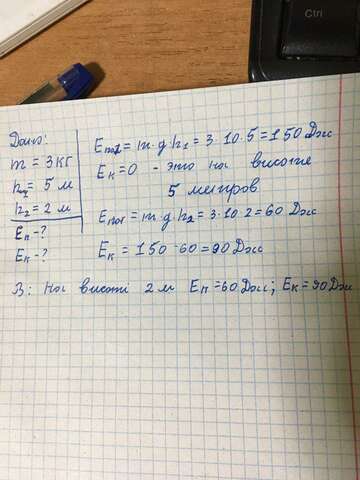 Ctrl
Дано:
m = 3 кг
h₁ = 5 м
h₂ = 2 м
Eп - ?
Eк - ?
Eпот = m·g·h₁ = 3·10·5 = 150 Дж
Eк = 0 - это на высоте
5 метров
Eпот = m·g·h₂ = 3·10·2 = 60 Дж
Eк = 150 - 60 = 90 Дж
В: на висоті 2 м Eп = 60 Дж; Eк = 90 Дж